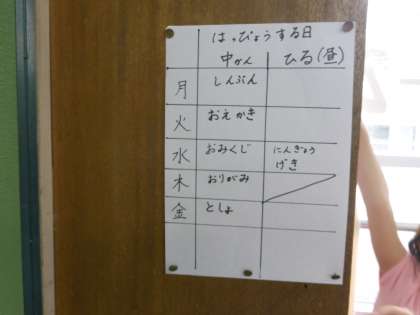 はっぴょうする日
中かん ひる(昼)
月 しんぶん
火 おえかき
水 おみくじ にんぎょう
げき
木 おりがみ
金 としょ